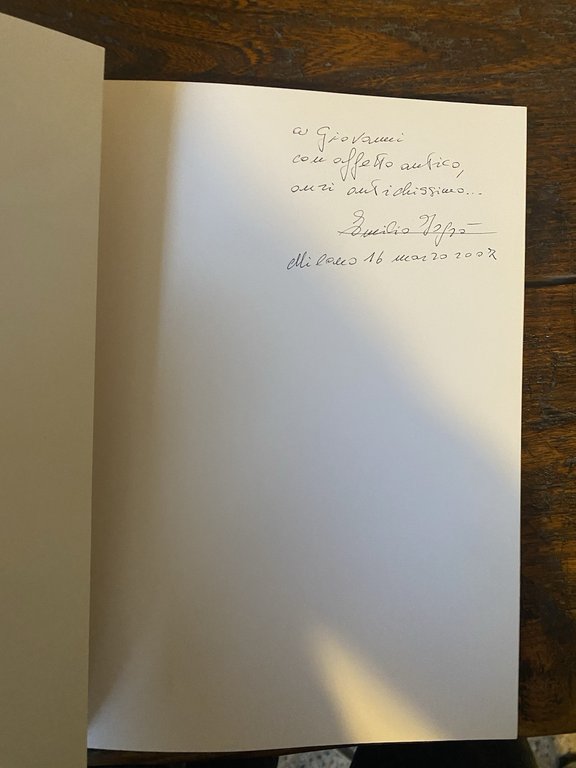 a Giovanni
con affetto antico,
anzi antichissimo...
Emilio Isgrò
Milano 16 marzo 2007